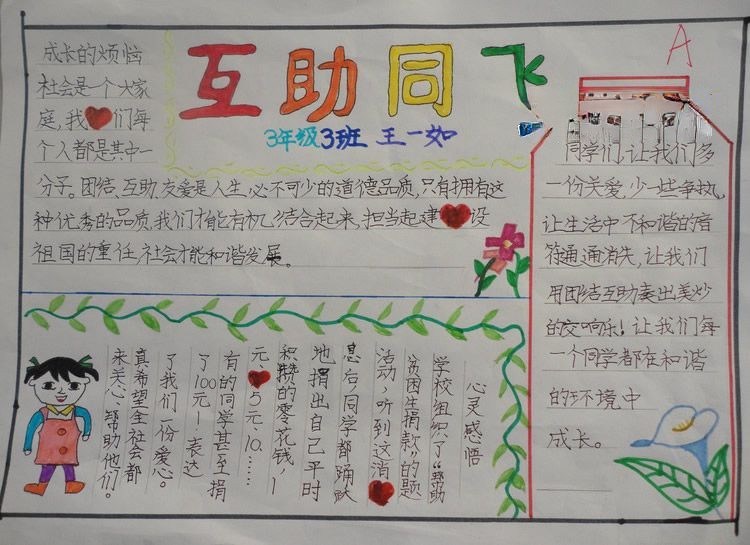 互助同飞
A
3年级3班 王一如
成长的烦恼
社会是一个大家
庭,我们每
个人都是其中一
分子。团结、互助、友爱是人生必不可少的道德品质,只有拥有这
种优秀的品质,我们才能有机结合起来,担当起建设
祖国的重任,社会才能和谐发展。
同学们,让我们多
一份关爱,少一些争执,
让生活中不和谐的音
符通通消失,让我们
用团结互助奏出美妙
的交响乐!让我们每
一个同学都在和谐
的环境中
成长。
心灵感悟
学校组织了“帮助
贫困生捐款”的题
活动,听到这消
息后,同学都踊跃
地捐出自己平时
积攒的零花钱,1
元、5元、10……
有的同学甚至捐
了100元—表达
了我们一份爱心。
真希望全社会都
来关心、帮助他们。